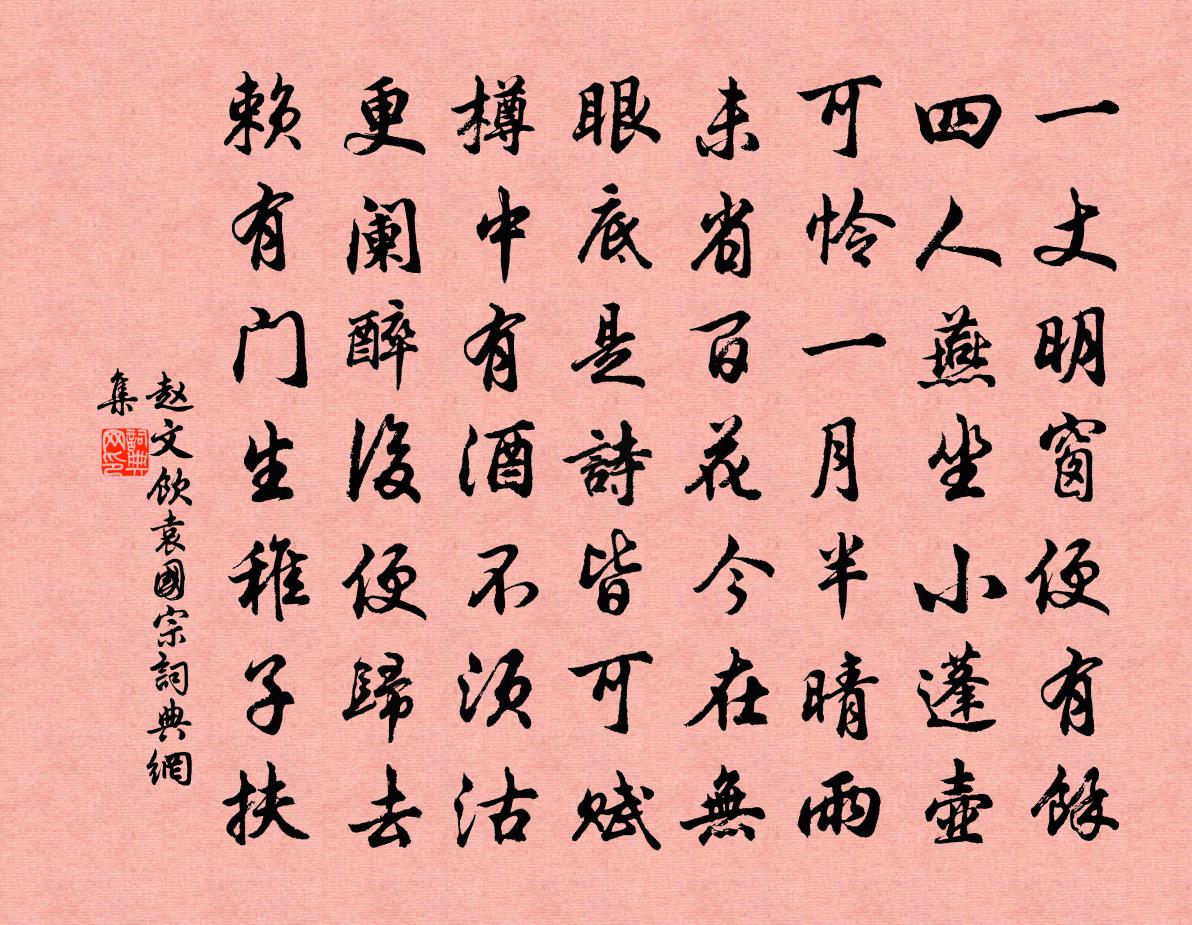 一丈明窗便有餘
四人燕坐小蓬壺
可怜一月半晴雨
未省百花今在無
眼底是詩皆可赋
樽中有酒不须沽
更阑醉後便歸去
赖有门生稚子扶
赵文饮袁國宗詞典網
集
詞典网印